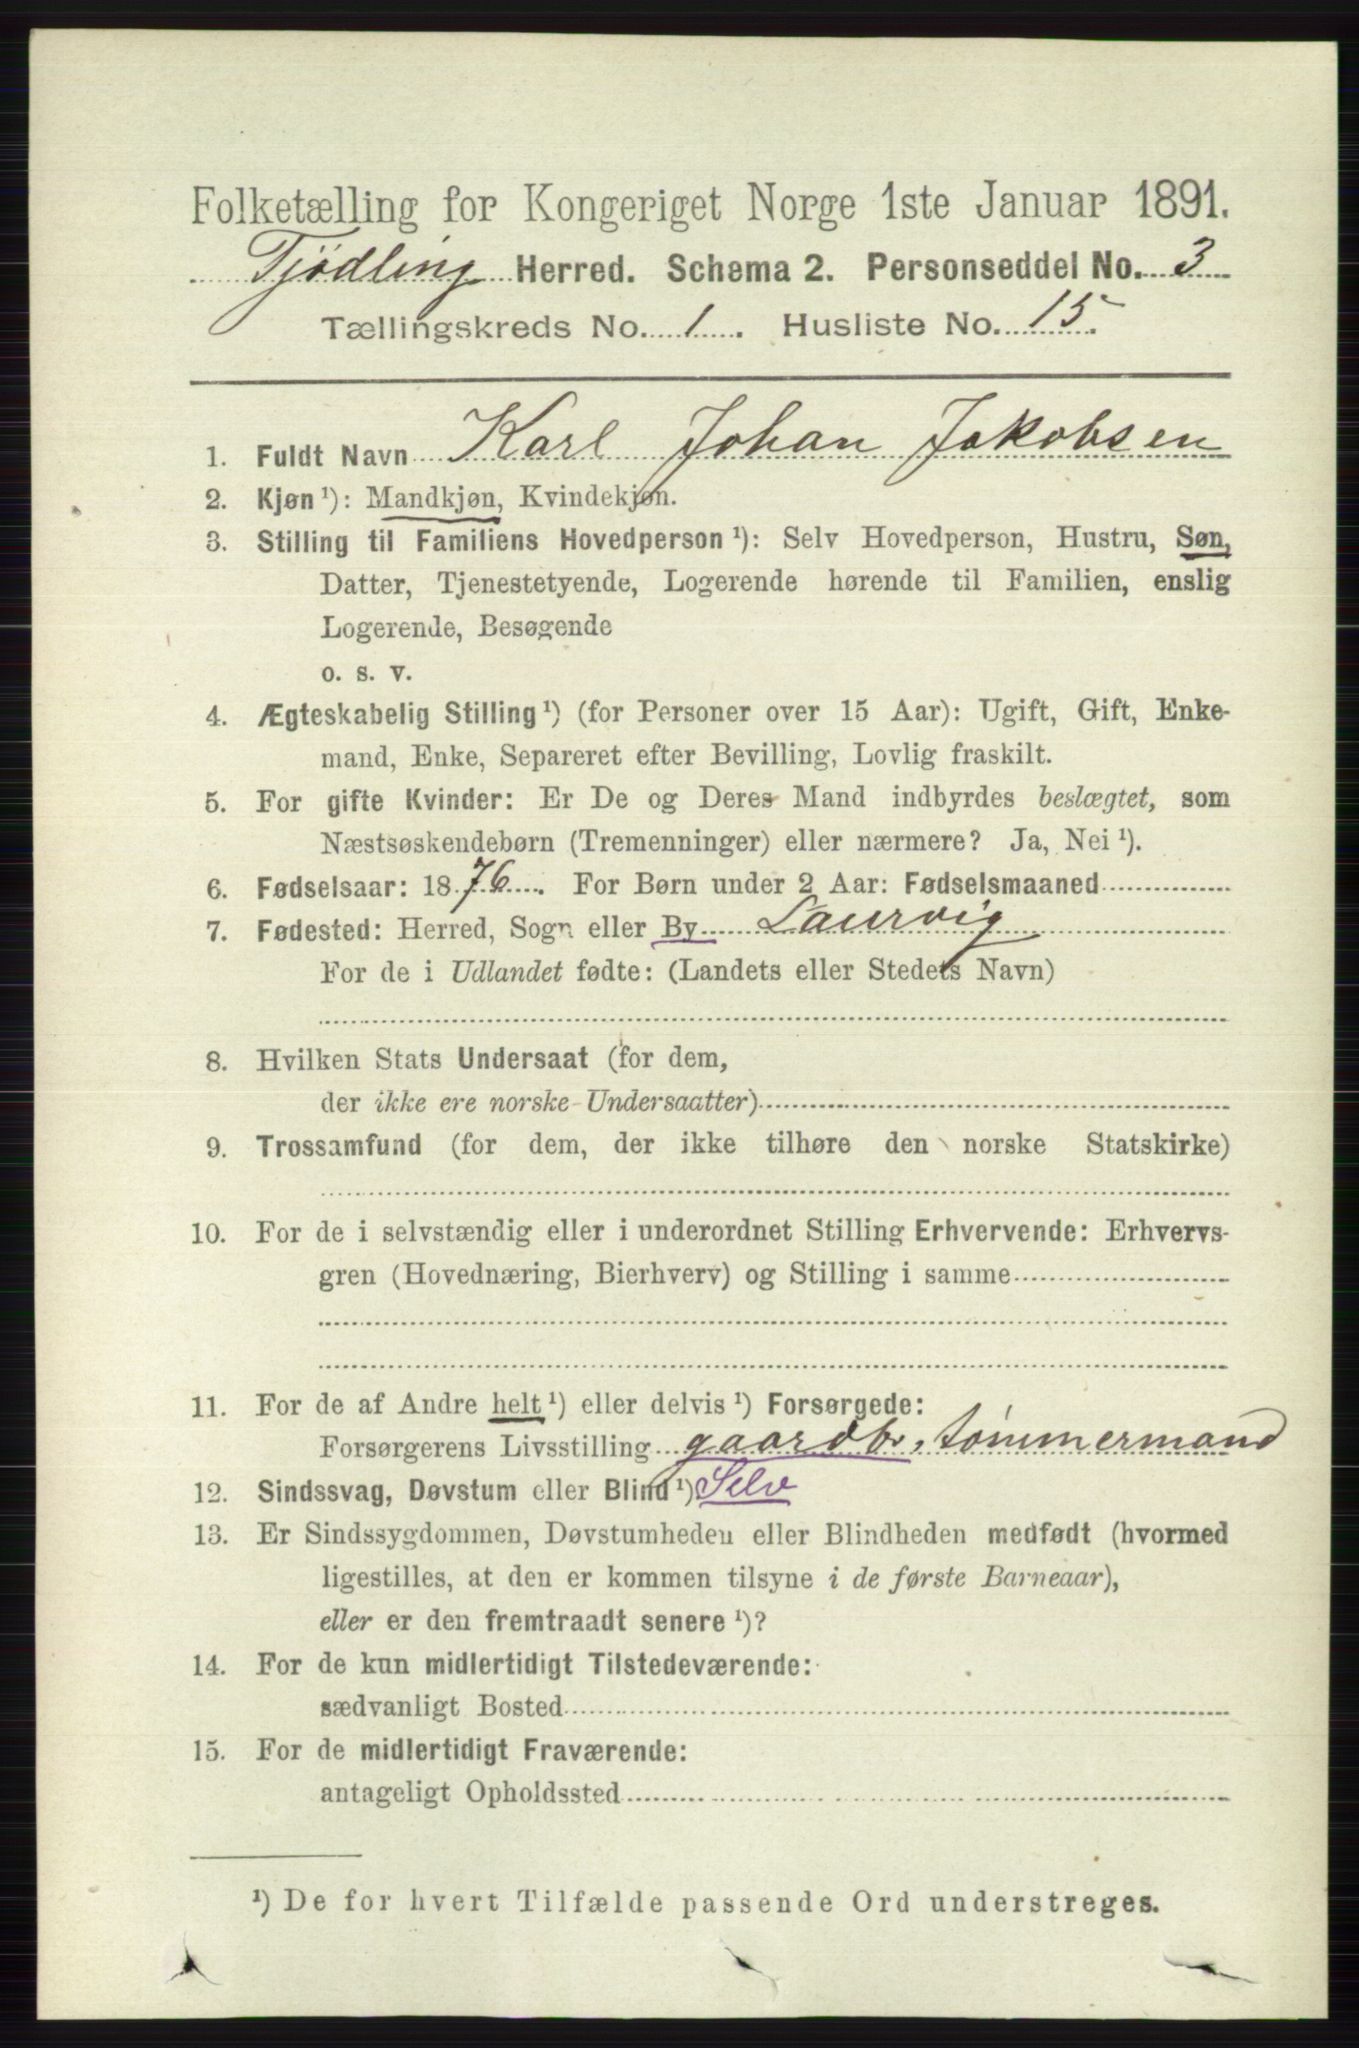 Folketælling for Kongeriget Norge 1ste Januar 1891.
Tjödling Herred. Schema 2. Personseddel No. 3
Tællingskreds No. 1. Husliste No. 15.
1. Fuldt Navn Karl Johan Jakobsen
2. Kjøn ¹): Mandkjøn, Kvindekjøn.
3. Stilling til Familiens Hovedperson ¹): Selv Hovedperson, Hustru, Søn,
Datter, Tjenestetyende, Logerende hørende til Familien, enslig
Logerende, Besøgende
o. s. v.
4. Ægteskabelig Stilling ¹) (for Personer over 15 Aar): Ugift, Gift, Enke-
mand, Enke, Separeret efter Bevilling, Lovlig fraskilt.
5. For gifte Kvinder: Er De og Deres Mand indbyrdes beslægtet, som
Næstsøskendebørn (Tremenninger) eller nærmere? Ja, Nei ¹).
6. Fødselsaar: 1876. For Børn under 2 Aar: Fødselsmaaned
7. Fødested: Herred, Sogn eller By Laurvig
For de i Udlandet fødte: (Landets eller Stedets Navn)
8. Hvilken Stats Undersaat (for dem,
der ikke ere norske Undersaatter)
9. Trossamfund (for dem, der ikke tilhøre den norske Statskirke)
10. For de i selvstændig eller i underordnet Stilling Erhvervende: Erhvervs-
gren (Hovednæring, Bierhverv) og Stilling i samme
11. For de af Andre helt ¹) eller delvis ¹) Forsørgede:
Forsørgerens Livsstilling gaardbr, tömmermand
12. Sindssvag, Døvstum eller Blind ¹) Selv
13. Er Sindssygdommen, Døvstumheden eller Blindheden medfødt (hvormed
ligestilles, at den er kommen tilsyne i de første Barneaar),
eller er den fremtraadt senere ¹)?
14. For de kun midlertidigt Tilstedeværende:
sædvanligt Bosted
15. For de midlertidigt Fraværende:
antageligt Opholdssted
¹) De for hvert Tilfælde passende Ord understreges.